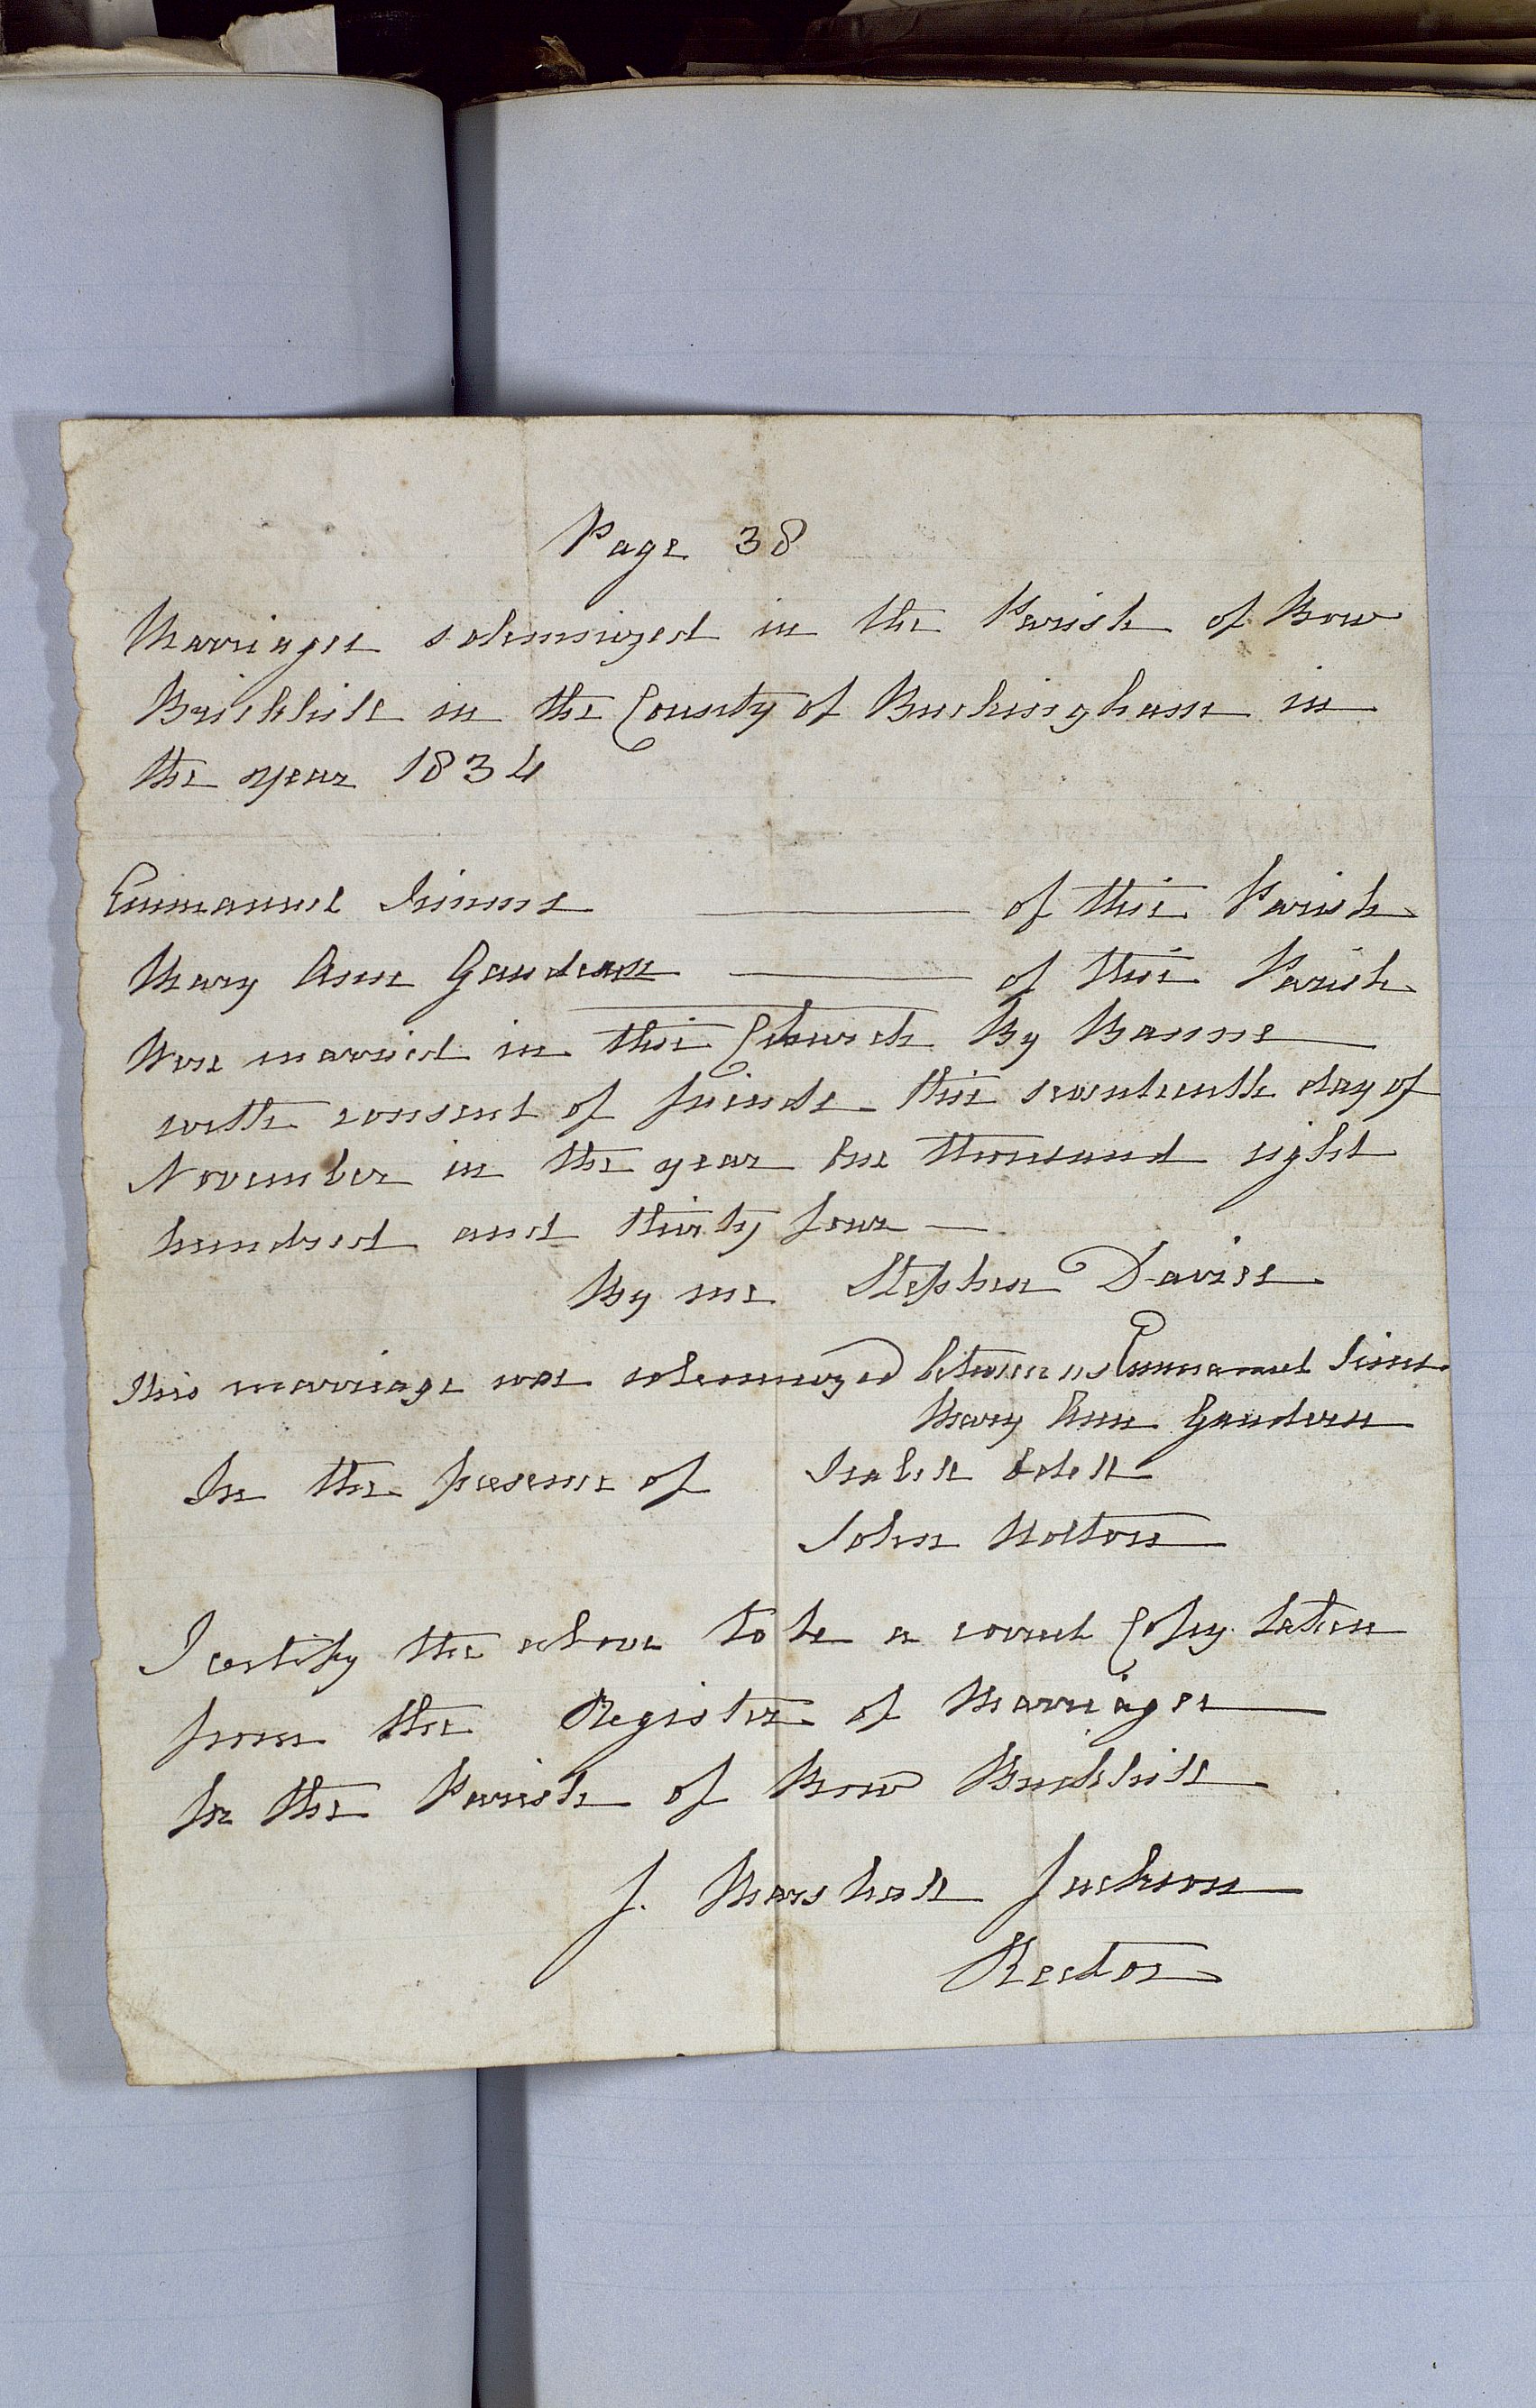 Page 38
Marriages solemnized in the Parish of Bow
Brickhill in the County of Buckingham in
the year 1834
Emmanuel of this Parish
Mary Ann Gaudern of this Parish
Were married in this Church By Banns
with consent of friends this seventeenth day of
November in the year One thousand eight
hundred and thirty four
By me Stephen Davies
This marriage was solemnized between us Emmanuel
Mary Ann Gaudern
In the presence of Isabell Odell
John Holton
I certify the above to be a correct Copy taken
from the Register of Marriages
for the Parish of Bow Brickhill
J. Marshall Jackson
Rector